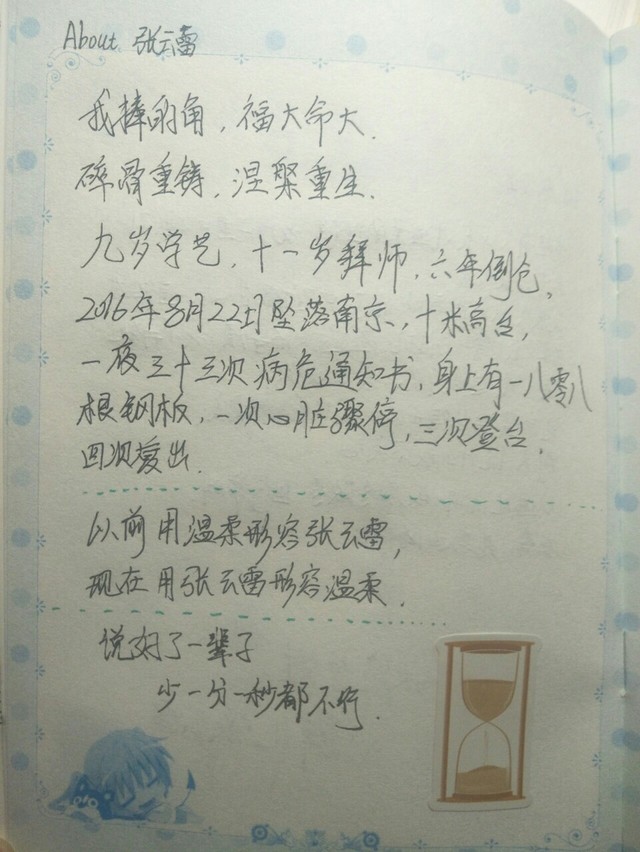 About 张云雷
我捧的角，福大命大.
碎骨重铸，涅槃重生.
九岁学艺，十一岁拜师，六年倒仓，
2016年8月22日坠落南京，十米高台，
一夜三十三次病危通知书，身上有一八零八
根钢板，一次心脏骤停，三次登台，
四次复出.
以前用温柔形容张云雷，
现在用张云雷形容温柔.
说好了一辈子
少一分一秒都不行.